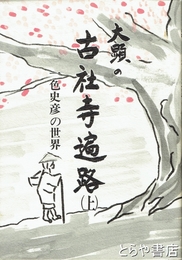 大顕の
古社寺遍路
(上)
包史彦の世界
とらや書店